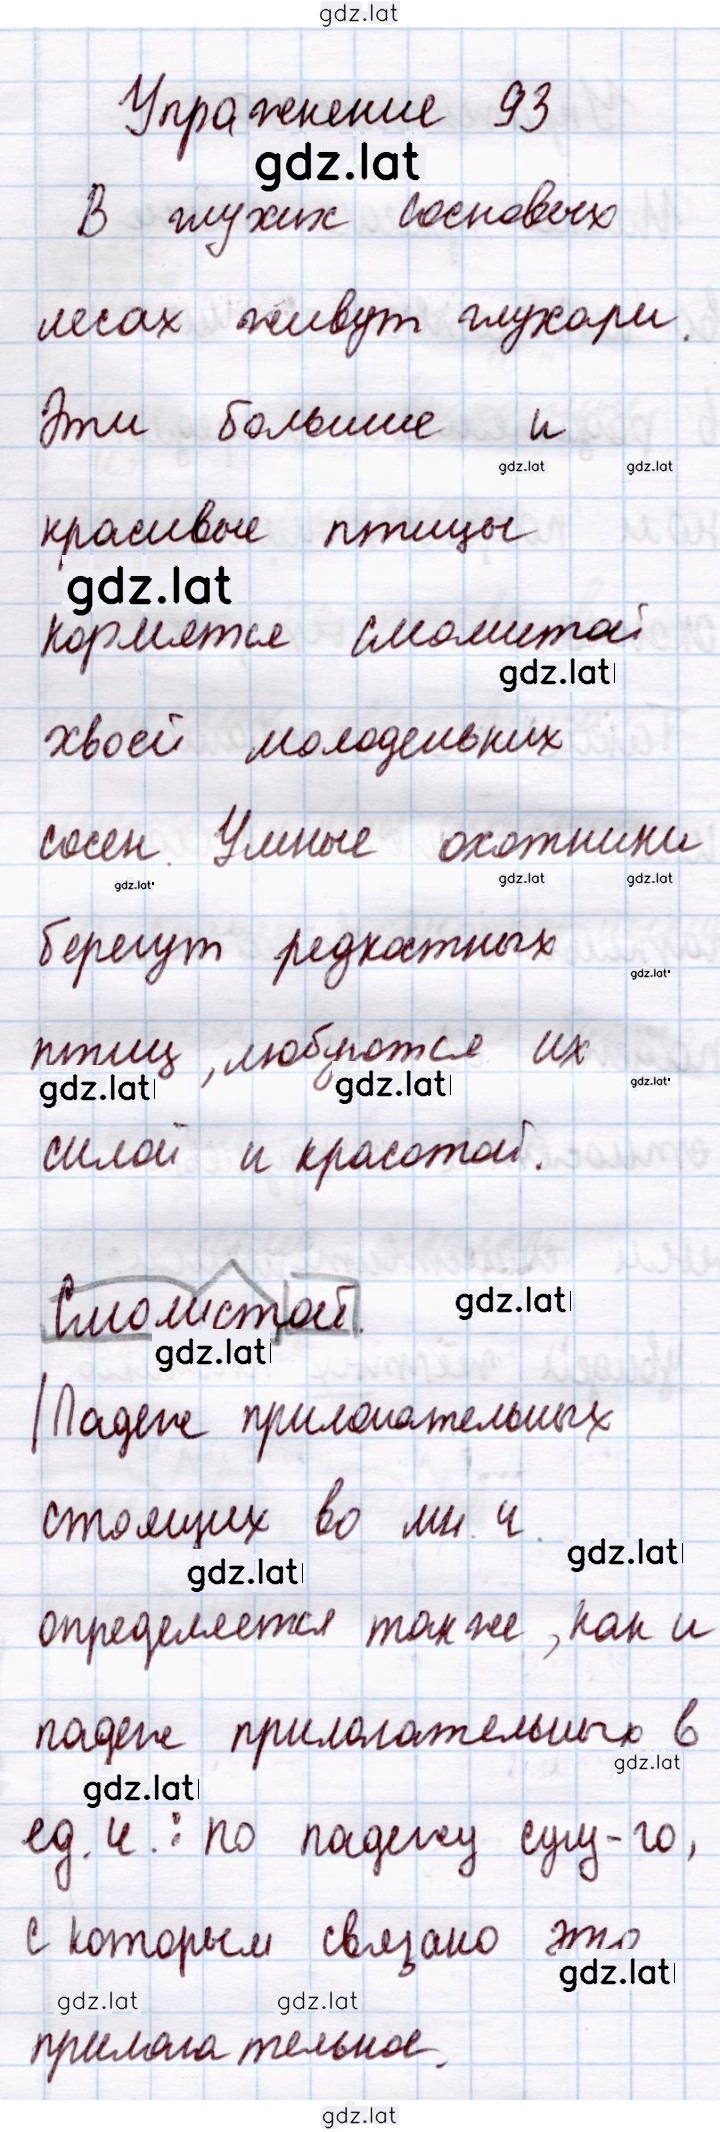 gdz.lat
Упражнение 93
gdz.lat
В глухих сосновых
лесах живут глухари.
Эти большие и
gdz.lat gdz.lat
красивые птицы
gdz.lat
кормятся смолистой
gdz.lat
хвоей молоденьких
сосен. Умные охотники
gdz.lat gdz.lat gdz.lat
берегут редкостных
gdz.lat
птиц, любуются их
gdz.lat gdz.lat gdz.lat
силой и красотой.
Смолистой.
gdz.lat
gdz.lat
Падеж прилагательных
стоящих во мн. ч.
gdz.lat
gdz.lat
определяется так же, как и
падеж прилагательных в
gdz.lat
gdz.lat
ед. ч.: по падежу сущ-го,
с которым связано это
gdz.lat
gdz.lat gdz.lat
прилагательное.
gdz.lat